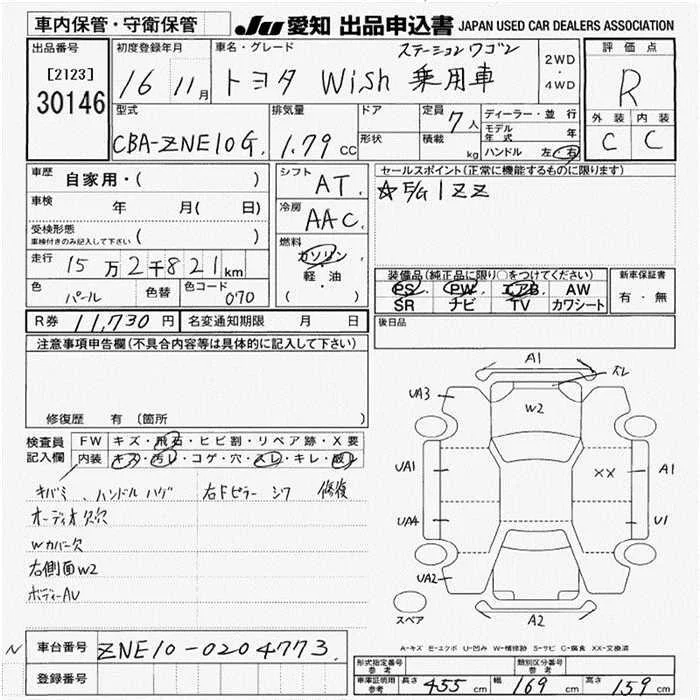 車内保管・守衛保管 JU 愛知 出品申込書 JAPAN USED CAR DEALERS ASSOCIATION
出品番号 初度登録年月 車名・グレード ステーションワゴン 2WD ・ 4WD 評価点
[2123] 16 11月 トヨタ Wish 乗用車 R
30146
型式 排気量 ドア 定員 7人 ディーラー・並行 外装 内装
CBA-ZNE10G. 1.79 CC 形状 積載 kg モデル年式 年 C C
ハンドル 左・右
車歴 自家用・( ) シフト AT. セールスポイント(正常に機能するものに限ります)
車検 年 月( 日) 冷房 AAC. ☆E/G 1ZZ
受検形態 車検付きのみ記入して下さい ( ) 燃料 ガソリン
走行 15万2千821km 軽・油 装備品(純正品に限り○をつけてください) 新車保証書
色 パール 色替 色コード 070 ( ・ ) PS PW エアB AW 有・無
SR ナビ TV カワシート
R券 11,730円 名変通知期限 月 日 後日品
注意事項申告欄(不具合内容等は具体的に記入して下さい)
修復歴 有 〔箇所 〕
検査員 FW キズ・飛石・ヒビ割・リペア跡・X要
記入欄 内装 キズ・汚レ・コゲ・穴・スレ・キレ・破レ
キバミ、ハンドルハゲ 右Fピラー シワ 修復
オーディオ欠穴
Wカバー欠
右側面W2
ボディーAU
A1
スレ
UA3
W2
UA1
XX
A1
UA4
U1
UA2
A2
スペア
A-キズ E-エクボ U-凹み W-補修跡 S-サビ C-腐食 XX-交換済
N 車台番号 ZNE10-0204773.
登録番号
形式指定番号 参考 類別区分番号 参考
車庫証明用 参考 長さ 455 cm 幅 169 cm 高さ 159 cm